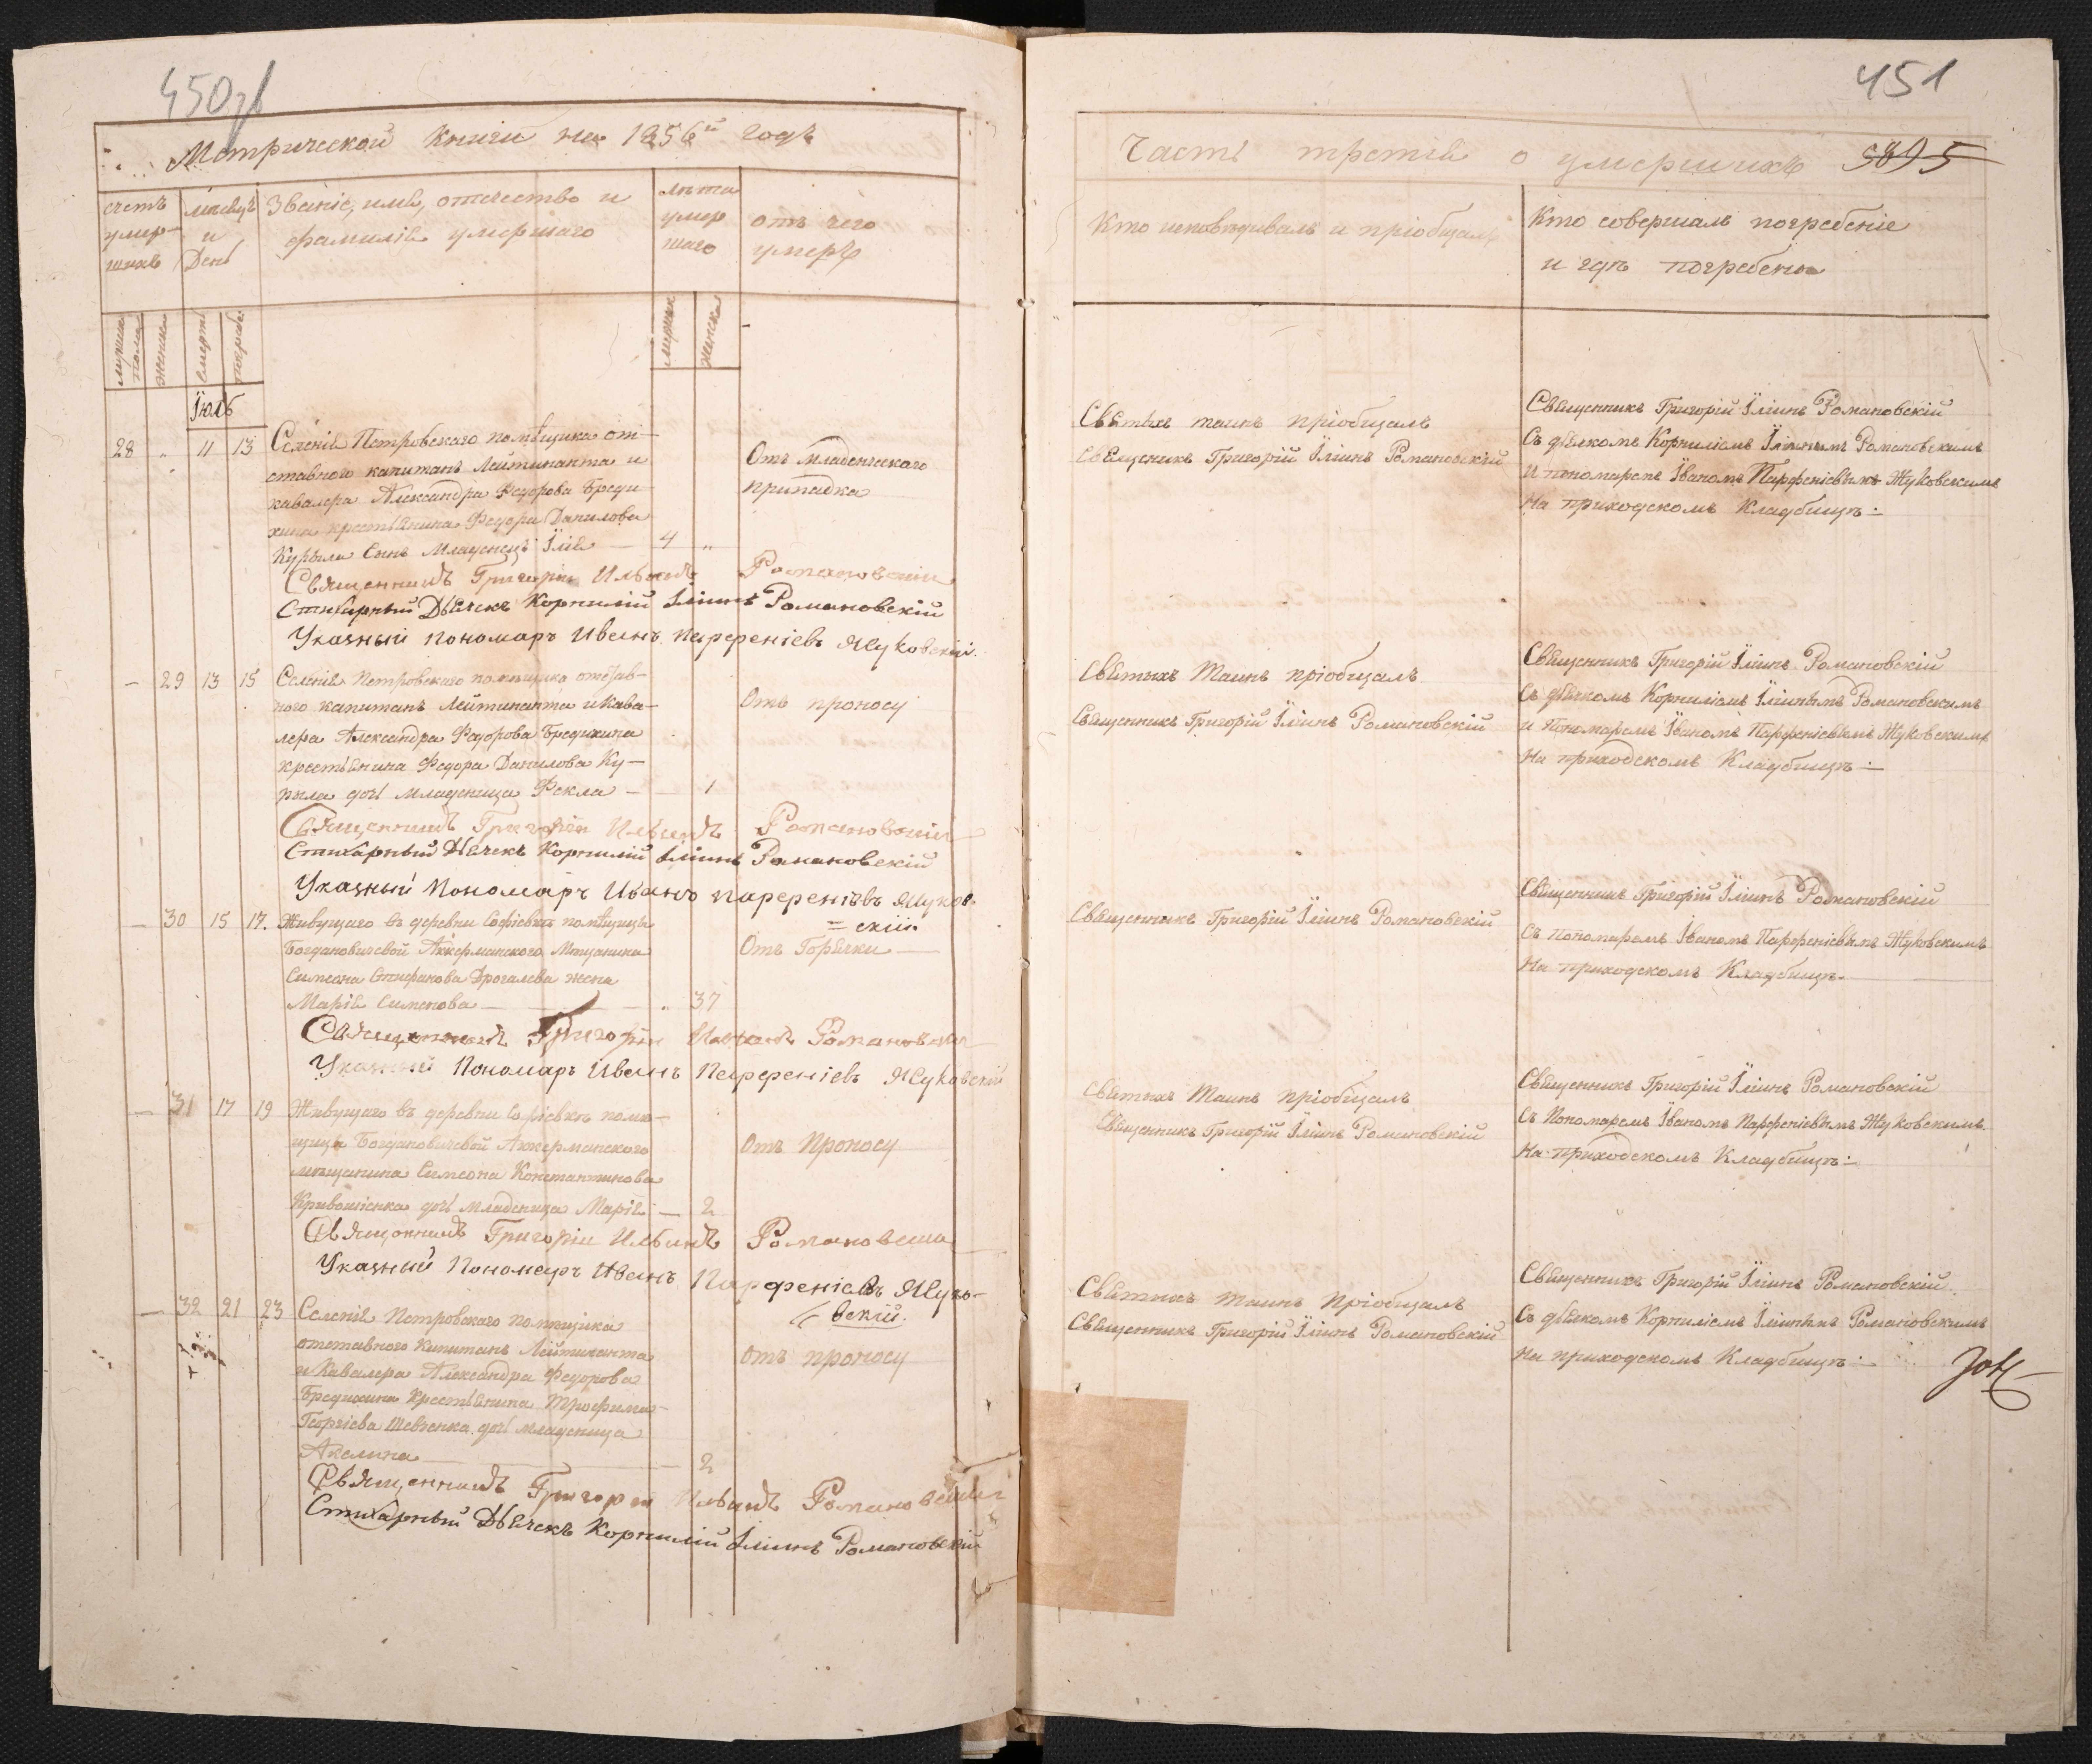 450 об
Метрической книги на 1856й годъ
счетъ умершихъ
мѣсяцъ и день
Званіе, имя, отечество и фамилія умершаго
лѣта умершаго
отъ чего умеръ
мужеска пола
женска
смерти
погребен
мужеск
женска
Іюль
28 " 11 13
Селенія Петровскаго помѣщика от-
ставного капитанъ Лейтинанта и
кавалера Александра Федорова Бреди-
хина крестьянина Федора Данилова
Курыла сынъ младенецъ Ілія — 4 "
Отъ младенческаго
припадка
Священникъ Григорій Ильинъ Романовскій
Стихарный Дьячекъ Корнилій Іліинъ Романовскій
Указный пономарь Иванъ Парфеніевъ Жуковскій.
— 29 13 15
Селенія Петровскаго помѣщика отстав-
ного капитанъ Лейтинанта и кава-
лера Александра Федорова Бредихина
крестьянина Федора Данилова Ку-
рыла дочь младеница Фекла — 1
Отъ проносу
Священникъ Григорій Ильинъ Романовскій
Стихарный Дьячекъ Корнилій Іліинъ Романовскій
Указный Пономарь Иванъ Парфеніевъ Жуков-
=скій.
— 30 15 17.
Живущаго въ деревни Софіевкѣ помѣщицы
Богдановичевой Аккерманского Мещанина
Симеона Стефанова Дрогалева жена
Марія Сименова — 37
Отъ Горячки
Священникъ Григорій Ильинъ Романовскій
Указный Пономарь Иванъ Парфеніевъ Жуковскій
— 31 17 19
Живущаго въ деревни Софіевкѣ помѣ-
щицы Богдановичевой Аккерманского
мещанина Симеона Константинова
Кривошіенка дочь младеница Марія — 2
Отъ Проносу
Священникъ Григорій Ильинъ Романовскій
Указный Пономарь Иванъ Парфеніевъ Жуко-
вскій.
— 32 21 23
Селенія Петровскаго помѣщика
отставного Капитанъ Лейтинанта
и Кавалера Александра Федорова
Бредихина крестьянина Трофима
Георгіева Шевченка дочь младеница
Акелина — 2
Отъ проносу
Священникъ Григорій Ильинъ Романовскій
Стихарный Дьячекъ Корнилій Іліинъ Романовскій
451
Часть третія о умершихъ 5895
Кто исповѣдывалъ и пріобщалъ
Кто совершалъ погребеніе
и гдѣ погребены
Святыхъ таинъ пріобщалъ
Священникъ Григорій Іліинъ Романовскій
Священникъ Григорій Іліинъ Романовскій
Съ дьякомъ Корниліемъ Іліинымъ Романовскимъ
И пономаремъ Іваномъ Парфеніевымъ Жуковскимъ
На приходскомъ Кладбищѣ:
Святыхъ Таинъ пріобщалъ
Священникъ Григорій Іліинъ Романовскій
Священникъ Григорій Іліинъ Романовскій
Съ дьячкомъ Корниліемъ Іліинымъ Романовскимъ
и Пономаремъ Іваномъ Парфеніевымъ Жуковскимъ
На приходскомъ Кладбищѣ:
Священникъ Григорій Іліинъ Романовскій
Священникъ Григорій Іліинъ Романовскій
Съ пономаремъ Іваномъ Парфеніевымъ Жуковскимъ
На приходскомъ Кладбищѣ.
Святыхъ Таинъ пріобщалъ
Священникъ Григорій Іліинъ Романовскій
Священникъ Григорій Іліинъ Романовскій
Съ Пономаремъ Іваномъ Парфеніевымъ Жуковскимъ
На приходскомъ Кладбищѣ:
Святыхъ таинъ Пріобщалъ
Священникъ Григорій Іліинъ Романовскій
Священникъ Григорій Іліинъ Романовскій
Съ дьякомъ Корниліемъ Іліинымъ Романовскимъ
На приходскомъ Кладбищѣ: